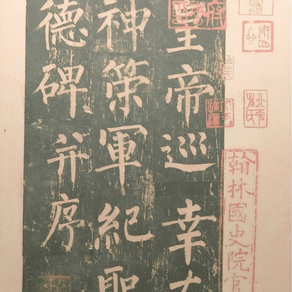 皇帝巡幸左
神策軍紀聖
德碑并序
翰林國史院官